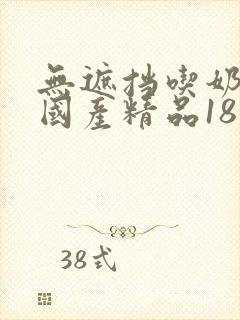 無遮挡喫奶
國產精品18
38式